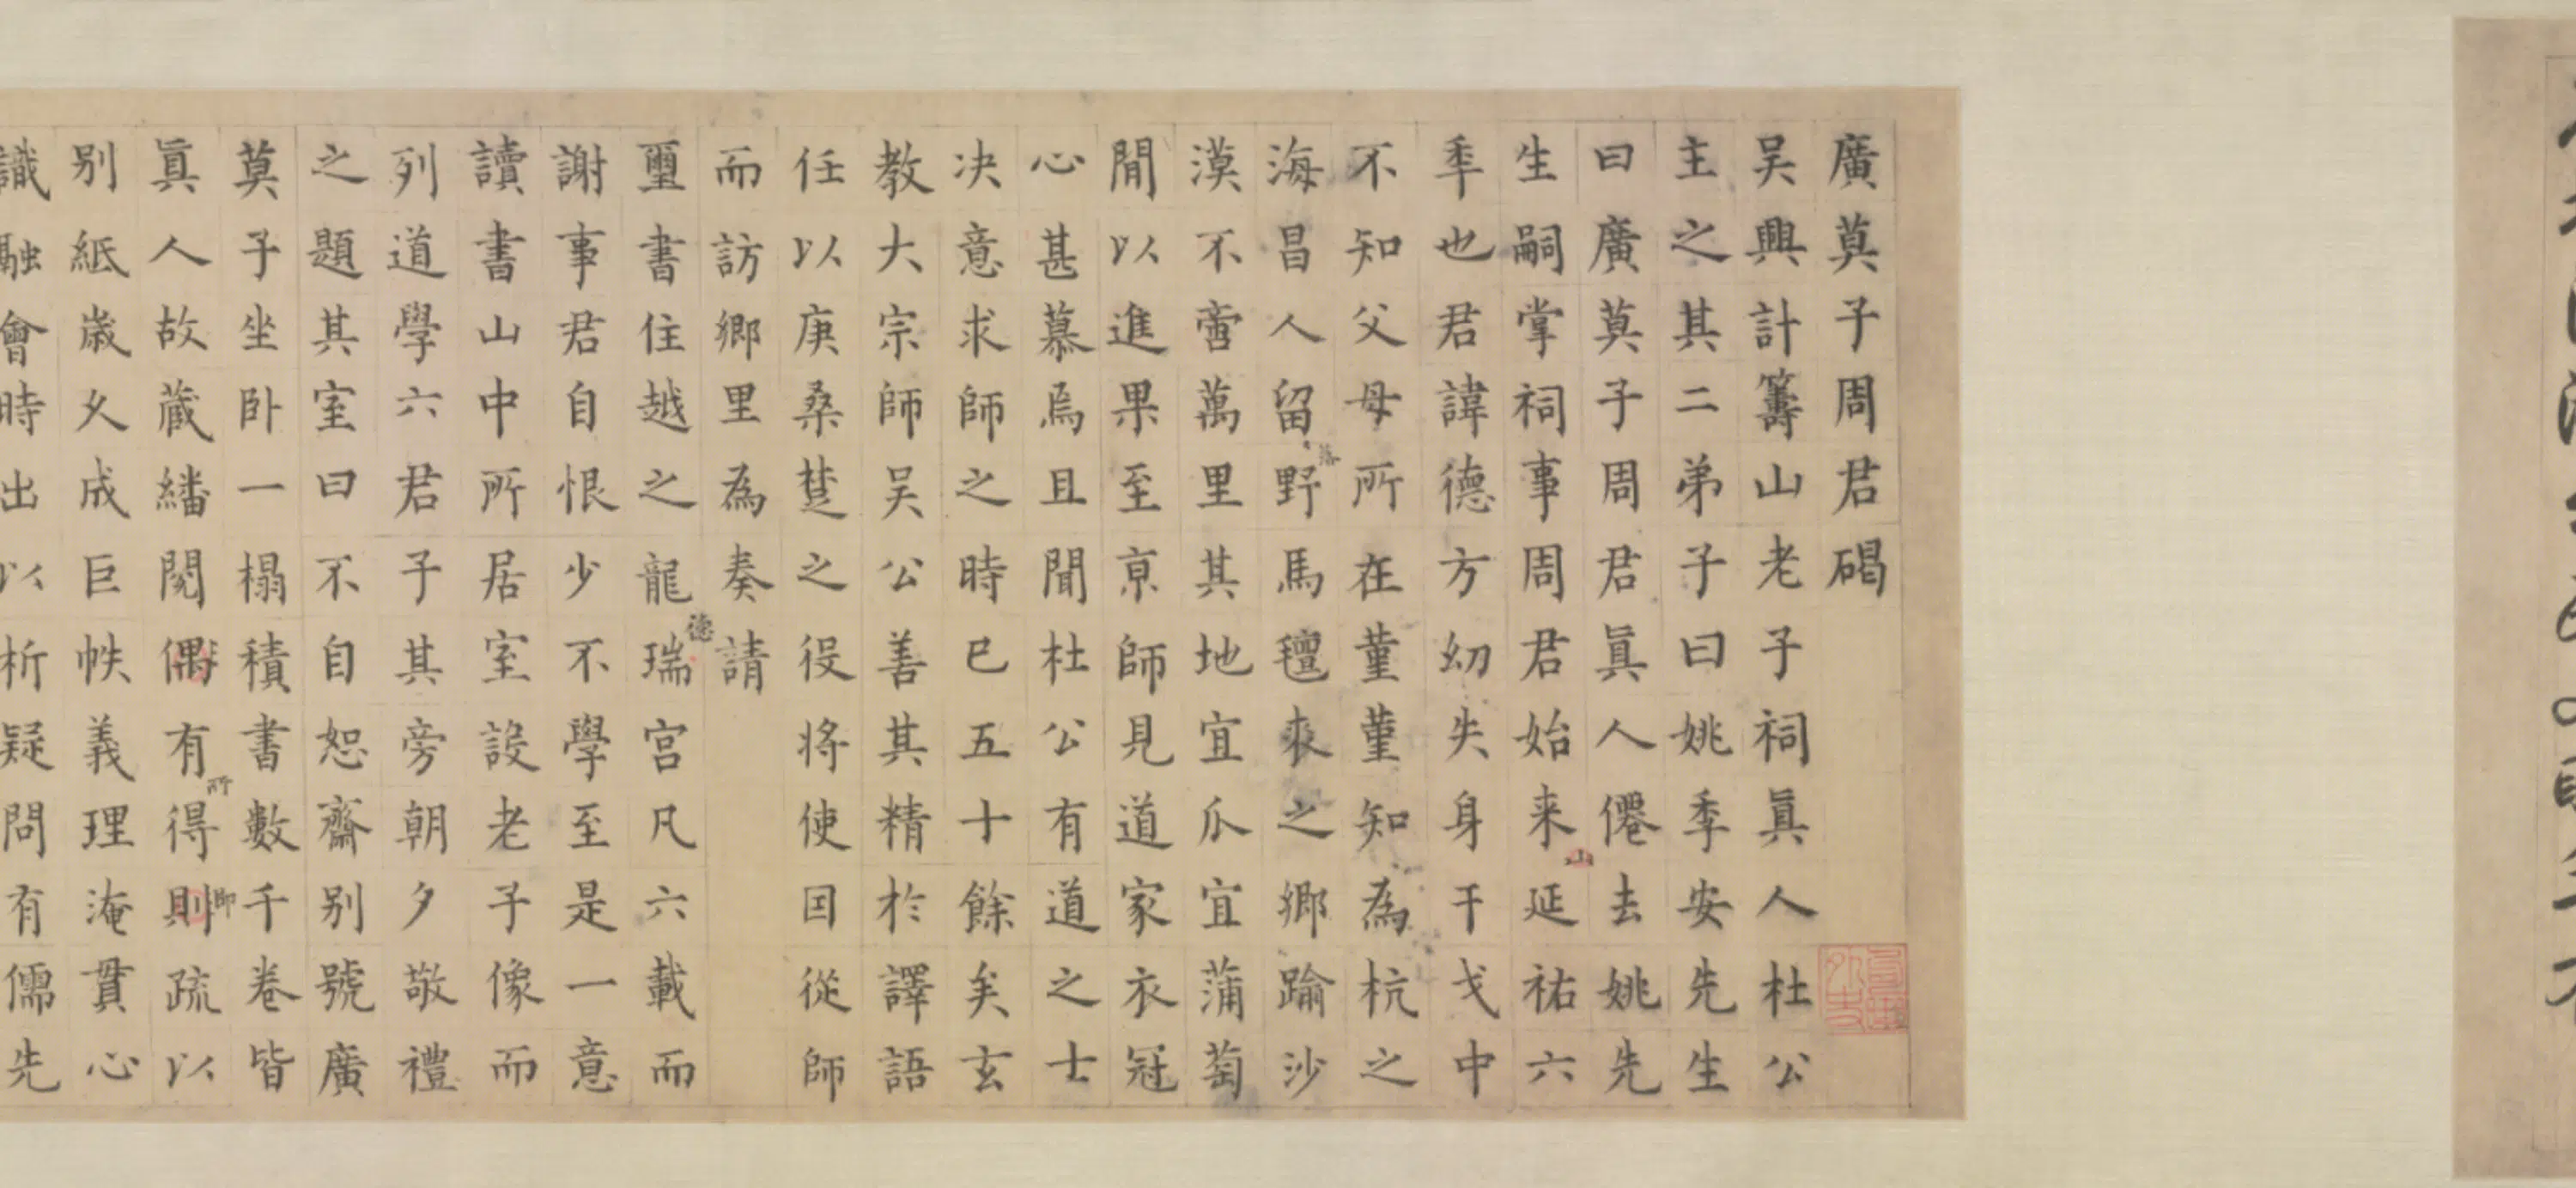 廣莫子周君碣
吴興計籌山老子祠真人杜公
主之其二弟子曰姚季安先生
曰廣莫子周君真人僊去姚先
生嗣掌祠事周君始来延祐六
山
季也君諱德方幼失身干戈中
不知父母所在董董知為杭之
海昌人留野馬氊裘之鄉踰沙
落
漠不啻萬里其地宜瓜宜蒲萄
閒以進果至京師見道家衣冠
心甚慕焉且聞杜公有道之士
决意求師之時已五十餘矣玄
教大宗師吴公善其精於譯語
任以庚桑楚之役将使回從師
而訪鄉里為奏請
璽書住越之龍瑞宫凡六載而
德
謝事君自恨少不學至是一意
讀書山中所居室設老子像而
列道學六君子其旁朝夕敬禮
之題其室曰不自恕齋别號廣
莫子坐卧一榻積書數千卷皆
真人故藏繙閱偶有得則疏以
所
即
别紙歳久成巨帙義理淹貫心
識融會時出以析疑問有儒先